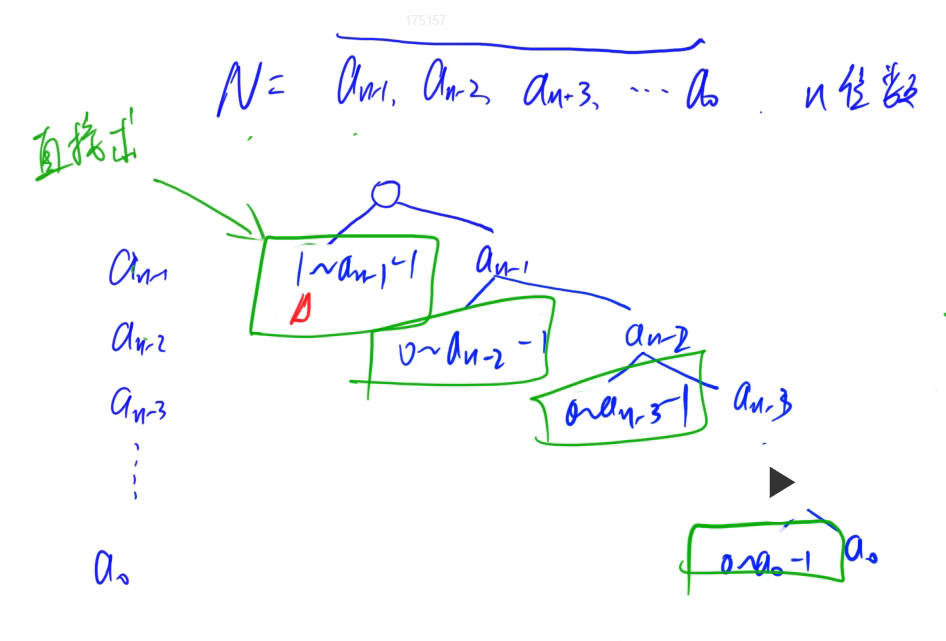 175157
N = aₙ₋₁, aₙ₋₂, aₙ₋₃, ⋯ a₀ . n位数
直接求
aₙ₋₁ 1~aₙ₋₁-1 aₙ₋₁
aₙ₋₂ 0~aₙ₋₂-1 aₙ₋₂
aₙ₋₃ 0~aₙ₋₃-1 aₙ₋₃
a₀ 0~a₀-1 a₀